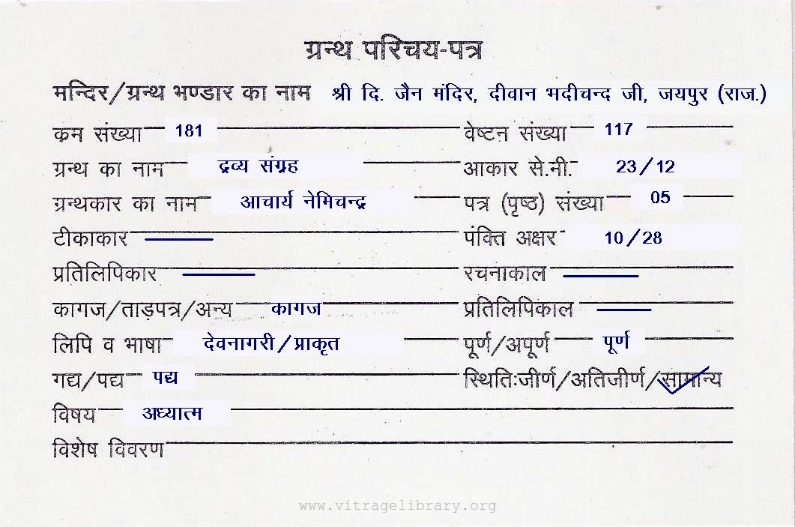 ग्रन्थ परिचय-पत्र
मन्दिर/ग्रन्थ भण्डार का नाम श्री दि. जैन मंदिर, दीवान भदीचन्द जी, जयपुर (राज.)
कम संख्या 181 वेष्टन संख्या 117
ग्रन्थ का नाम द्रव्य संग्रह आकार से.मी. 23/12
ग्रन्थकार का नाम आचार्य नेमिचन्द्र पत्र (पृष्ठ) संख्या 05
टीकाकार पंक्ति अक्षर 10/28
प्रतिलिपिकार रचनाकाल
कागज/ताड़पत्र/अन्य कागज प्रतिलिपिकाल
लिपि व भाषा देवनागरी/प्राकृत पूर्ण/अपूर्ण पूर्ण
गद्य/पद्य पद्य स्थितिःजीर्ण/अतिजीर्ण/सामान्य
विषय अध्यात्म
विशेष विवरण
www.vitragelibrary.org